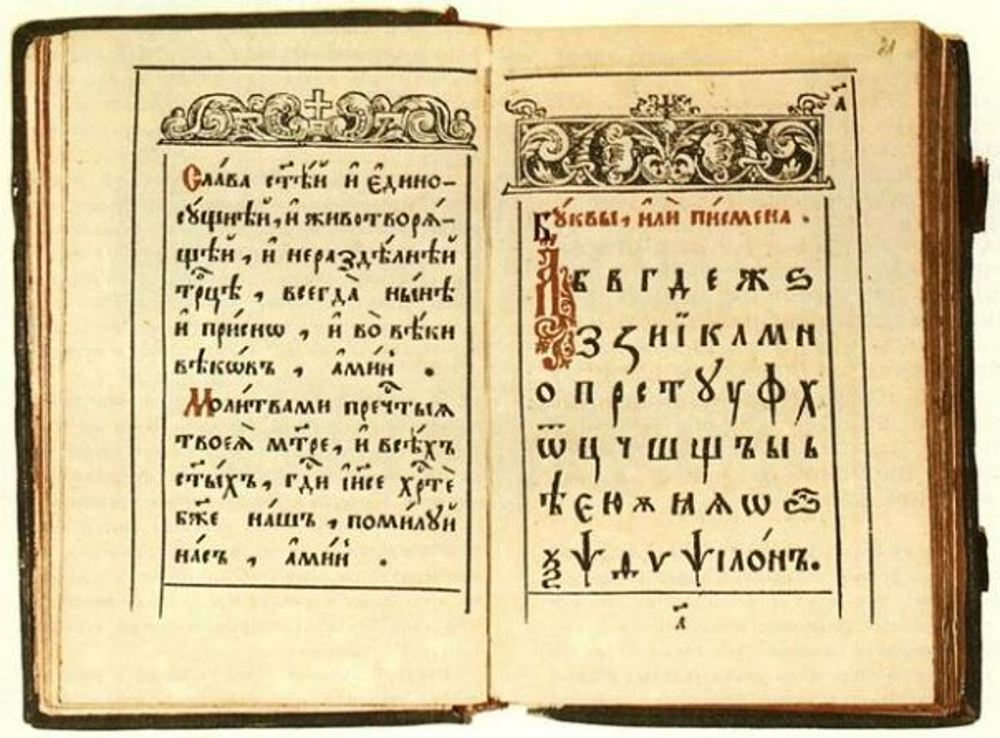 Сла́ва ст҃ѣ́й и҆ є҆дино-
сꙋ́щнѣй, и҆ животворѧ́-
щѣй, и҆ нераздѣ́лнѣй
трⷪ҇цѣ, всегда̀ ны́нѣ
и҆ при́снѡ, и҆ во̀ вѣ́ки
вѣкѡ́въ, а҆ми́нь.
Моли́твами пречⷭ҇тыѧ
твоеѧ̀ мт҃ре, и҆ всѣ́хъ
ст҃ы́хъ, гдⷭ҇и і҆и҃се хрⷭ҇тѐ
бж҃е на́шъ, поми́лꙋй
на́съ, а҆ми́нь.
21
а҃
Бꙋ́квы, и҆лѝ пи́смена.
А б в г д е ж ѕ
З ꙁ и ї к л м н
о п р с т ꙋ у ф х
ѿ ц ч ш щ ъ ы ь
ѣ є ю ѫ ꙗ ѧ ѡ
ѯ ѱ ѵ ѱїло́нъ.
а҃